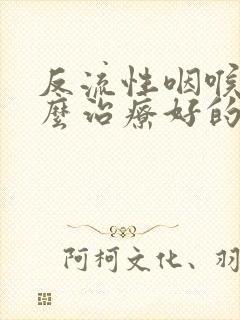 反流性咽喉
麼治療好的
阿柯文化、羽